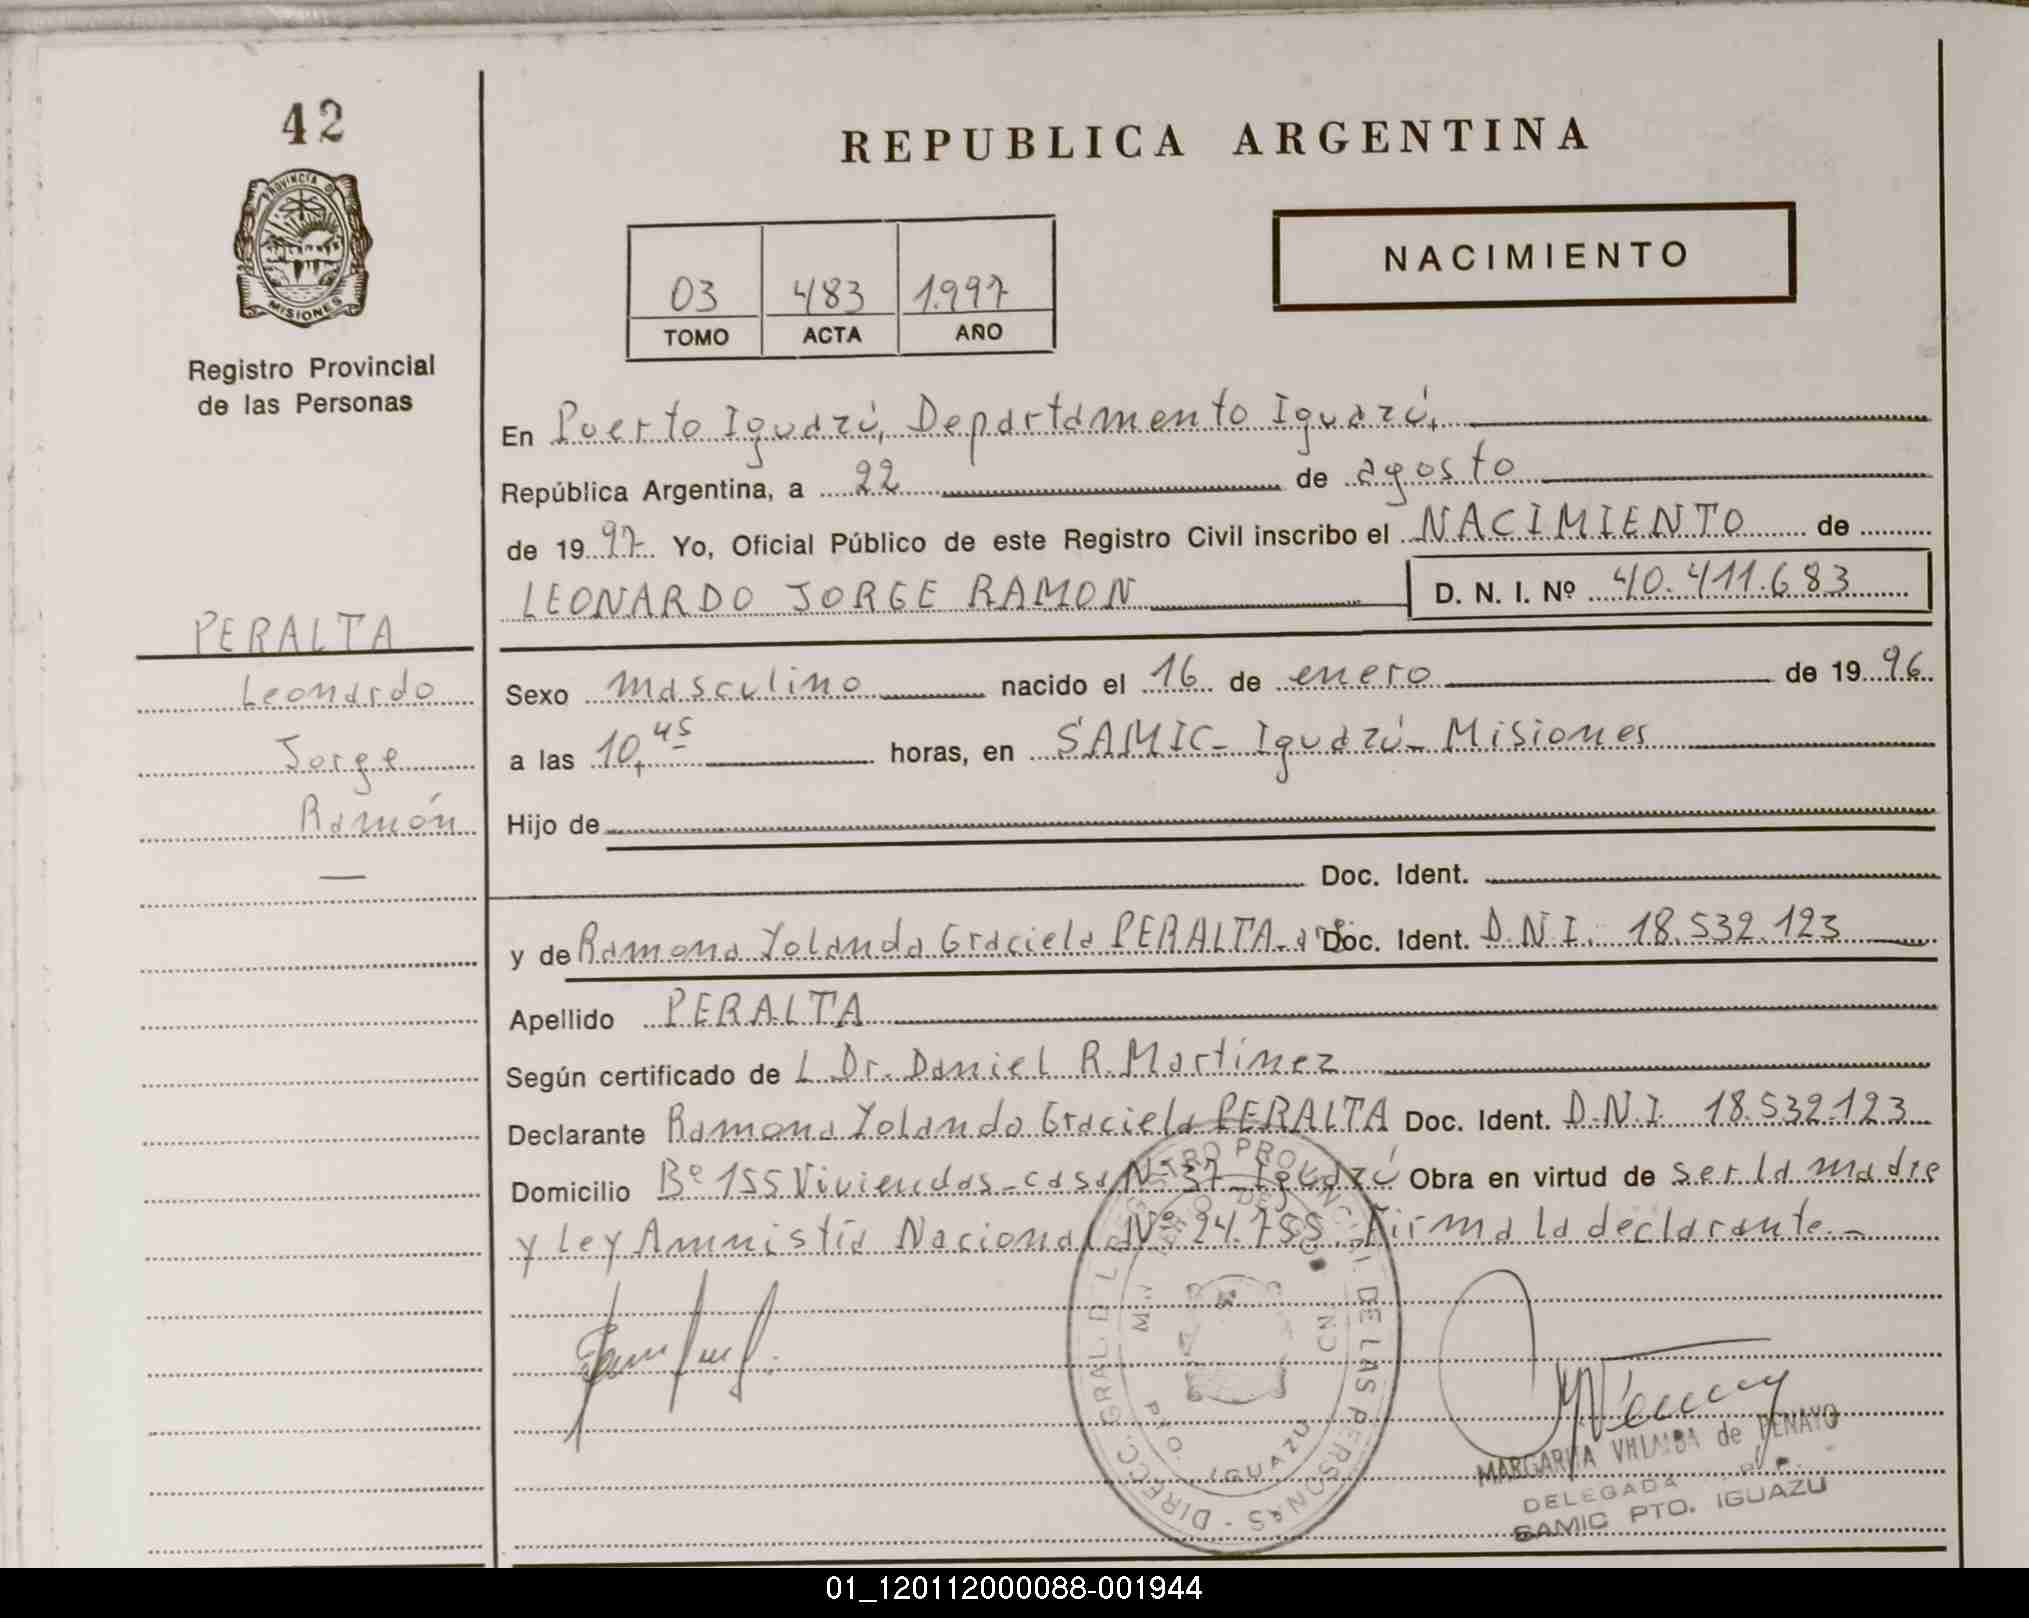 42
PROVINCIA D
MISIONES
Registro Provincial
de las Personas
REPUBLICA ARGENTINA
03 483 1.997
TOMO ACTA AÑO
NACIMIENTO
En Puerto Iguazú, Departamento Iguazú,
República Argentina, a 22 de agosto
de 1997 Yo, Oficial Público de este Registro Civil inscribo el NACIMIENTO de
LEONARDO JORGE RAMON D. N. I. Nº 40.411.683
PERALTA
Leonardo
Jorge
Ramón
Sexo masculino nacido el 16 de enero de 1996
a las 10,45 horas, en SAMIC- Iguazú- Misiones
Hijo de
Doc. Ident.
y de Ramona Yolanda Graciela PERALTA- Doc. Ident. D.N.I. 18.532.123
Apellido PERALTA
Según certificado de L Dr. Daniel R. Martínez
Declarante Ramona Yolanda Graciela PERALTA Doc. Ident. D.N.I. 18.532.123
Domicilio Bº 155 Viviendas-casa Nº 37-Iguazú Obra en virtud de ser la madre
y Ley Amnistía Nacional Nº 24.755. Firma la declarante.-
DIRECC. GRAL DEL REGISTRO PROVINCIAL DE LAS PERSONAS -
IGUAZU
MARGARITA VILLALBA de PENAYO
DELEGADA
SAMIC PTO. IGUAZU
01_120112000088-001944